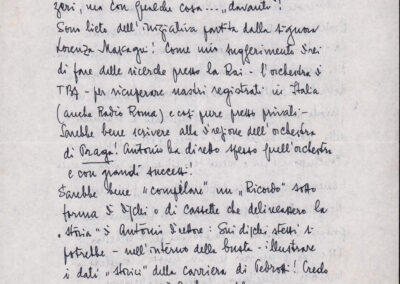 zeri, ma con qualche cosa.... "davanti"!
Sono lieto dell'iniziativa partita dalla signora
Lorenza : Come mio suggerimento direi
di fare delle ricerche presso la Rai - l'orchestra di
- per ricuperare nastri registrati in Italia
(anche Radio Roma) e così pure presso privati -
Sarebbe bene scrivere alla direzione dell'orchestra
di Praga! Antonio ha diretto spesso quell'orchestra
e con grandi successi!
Sarebbe bene "compilare" un "Ricordo" sotto
forma di dischi o di cassette che delineassero la
"storia" di Antonio direttore: Sui dischi stessi si
potrebbe - nell'interno della busta - illustrare
i dati "storici" della carriera di Pedrotti! Credo